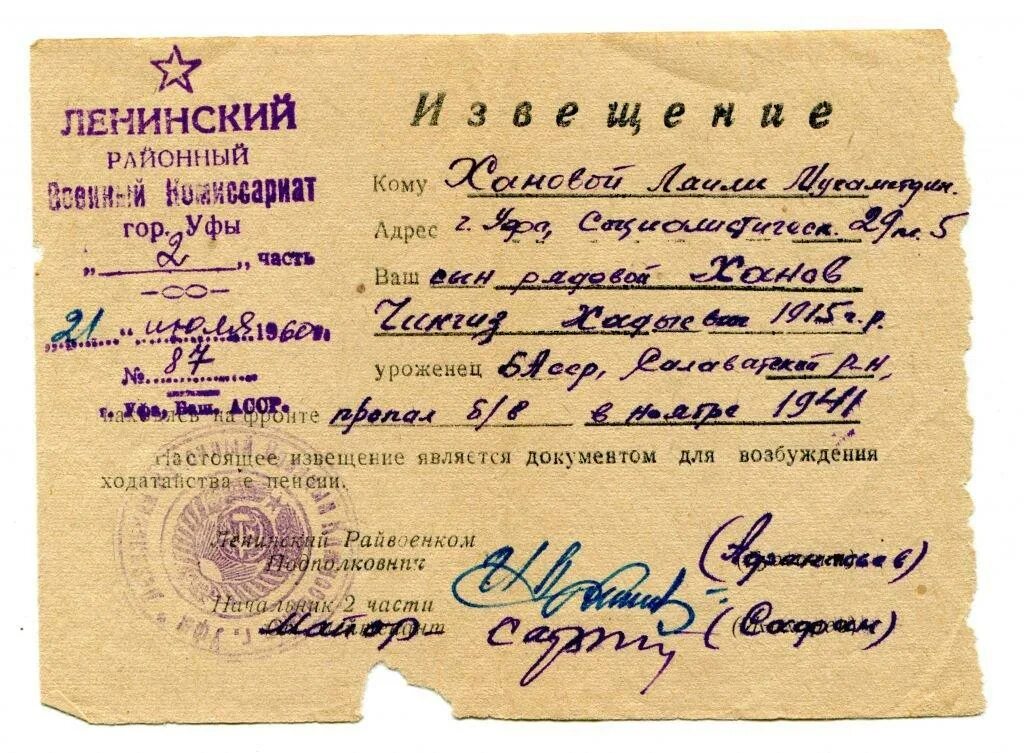 ЛЕНИНСКИЙ
РАЙОННЫЙ
Военный Комиссариат
гор. Уфы
„ 2 „ часть
„21 „ июля 1960 г.
№ 87
г. Уфа, Баш. АССР.
Извещение
Кому Хановой Лаили Мухаметдин.
Адрес г. Уфа, Социалистическ. 29 кв. 5
Ваш сын рядовой Ханов
Чингиз Хадыевич 1915 г.р.
уроженец БАССР, Салаватский р-н,
находясь на фронте пропал б/в в ноябре 1941
Настоящее извещение является документом для возбуждения
ходатайства е пенсии.
Ленинский Райвоенком
Подполковник
Начальник 2 части
Майор
г. Уфа